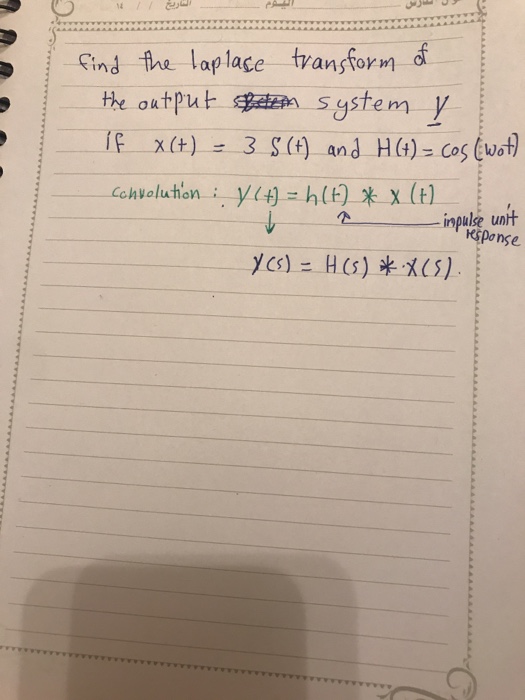 التاريخ / / ١٤
اليوم
Find the laplase transform of
the output system y
if x(t) = 3 S(t) and H(t) = cos(wot)
convolution : y(t) = h(t) * x(t)
impulse unit
response
Y(s) = H(s) * X(s).